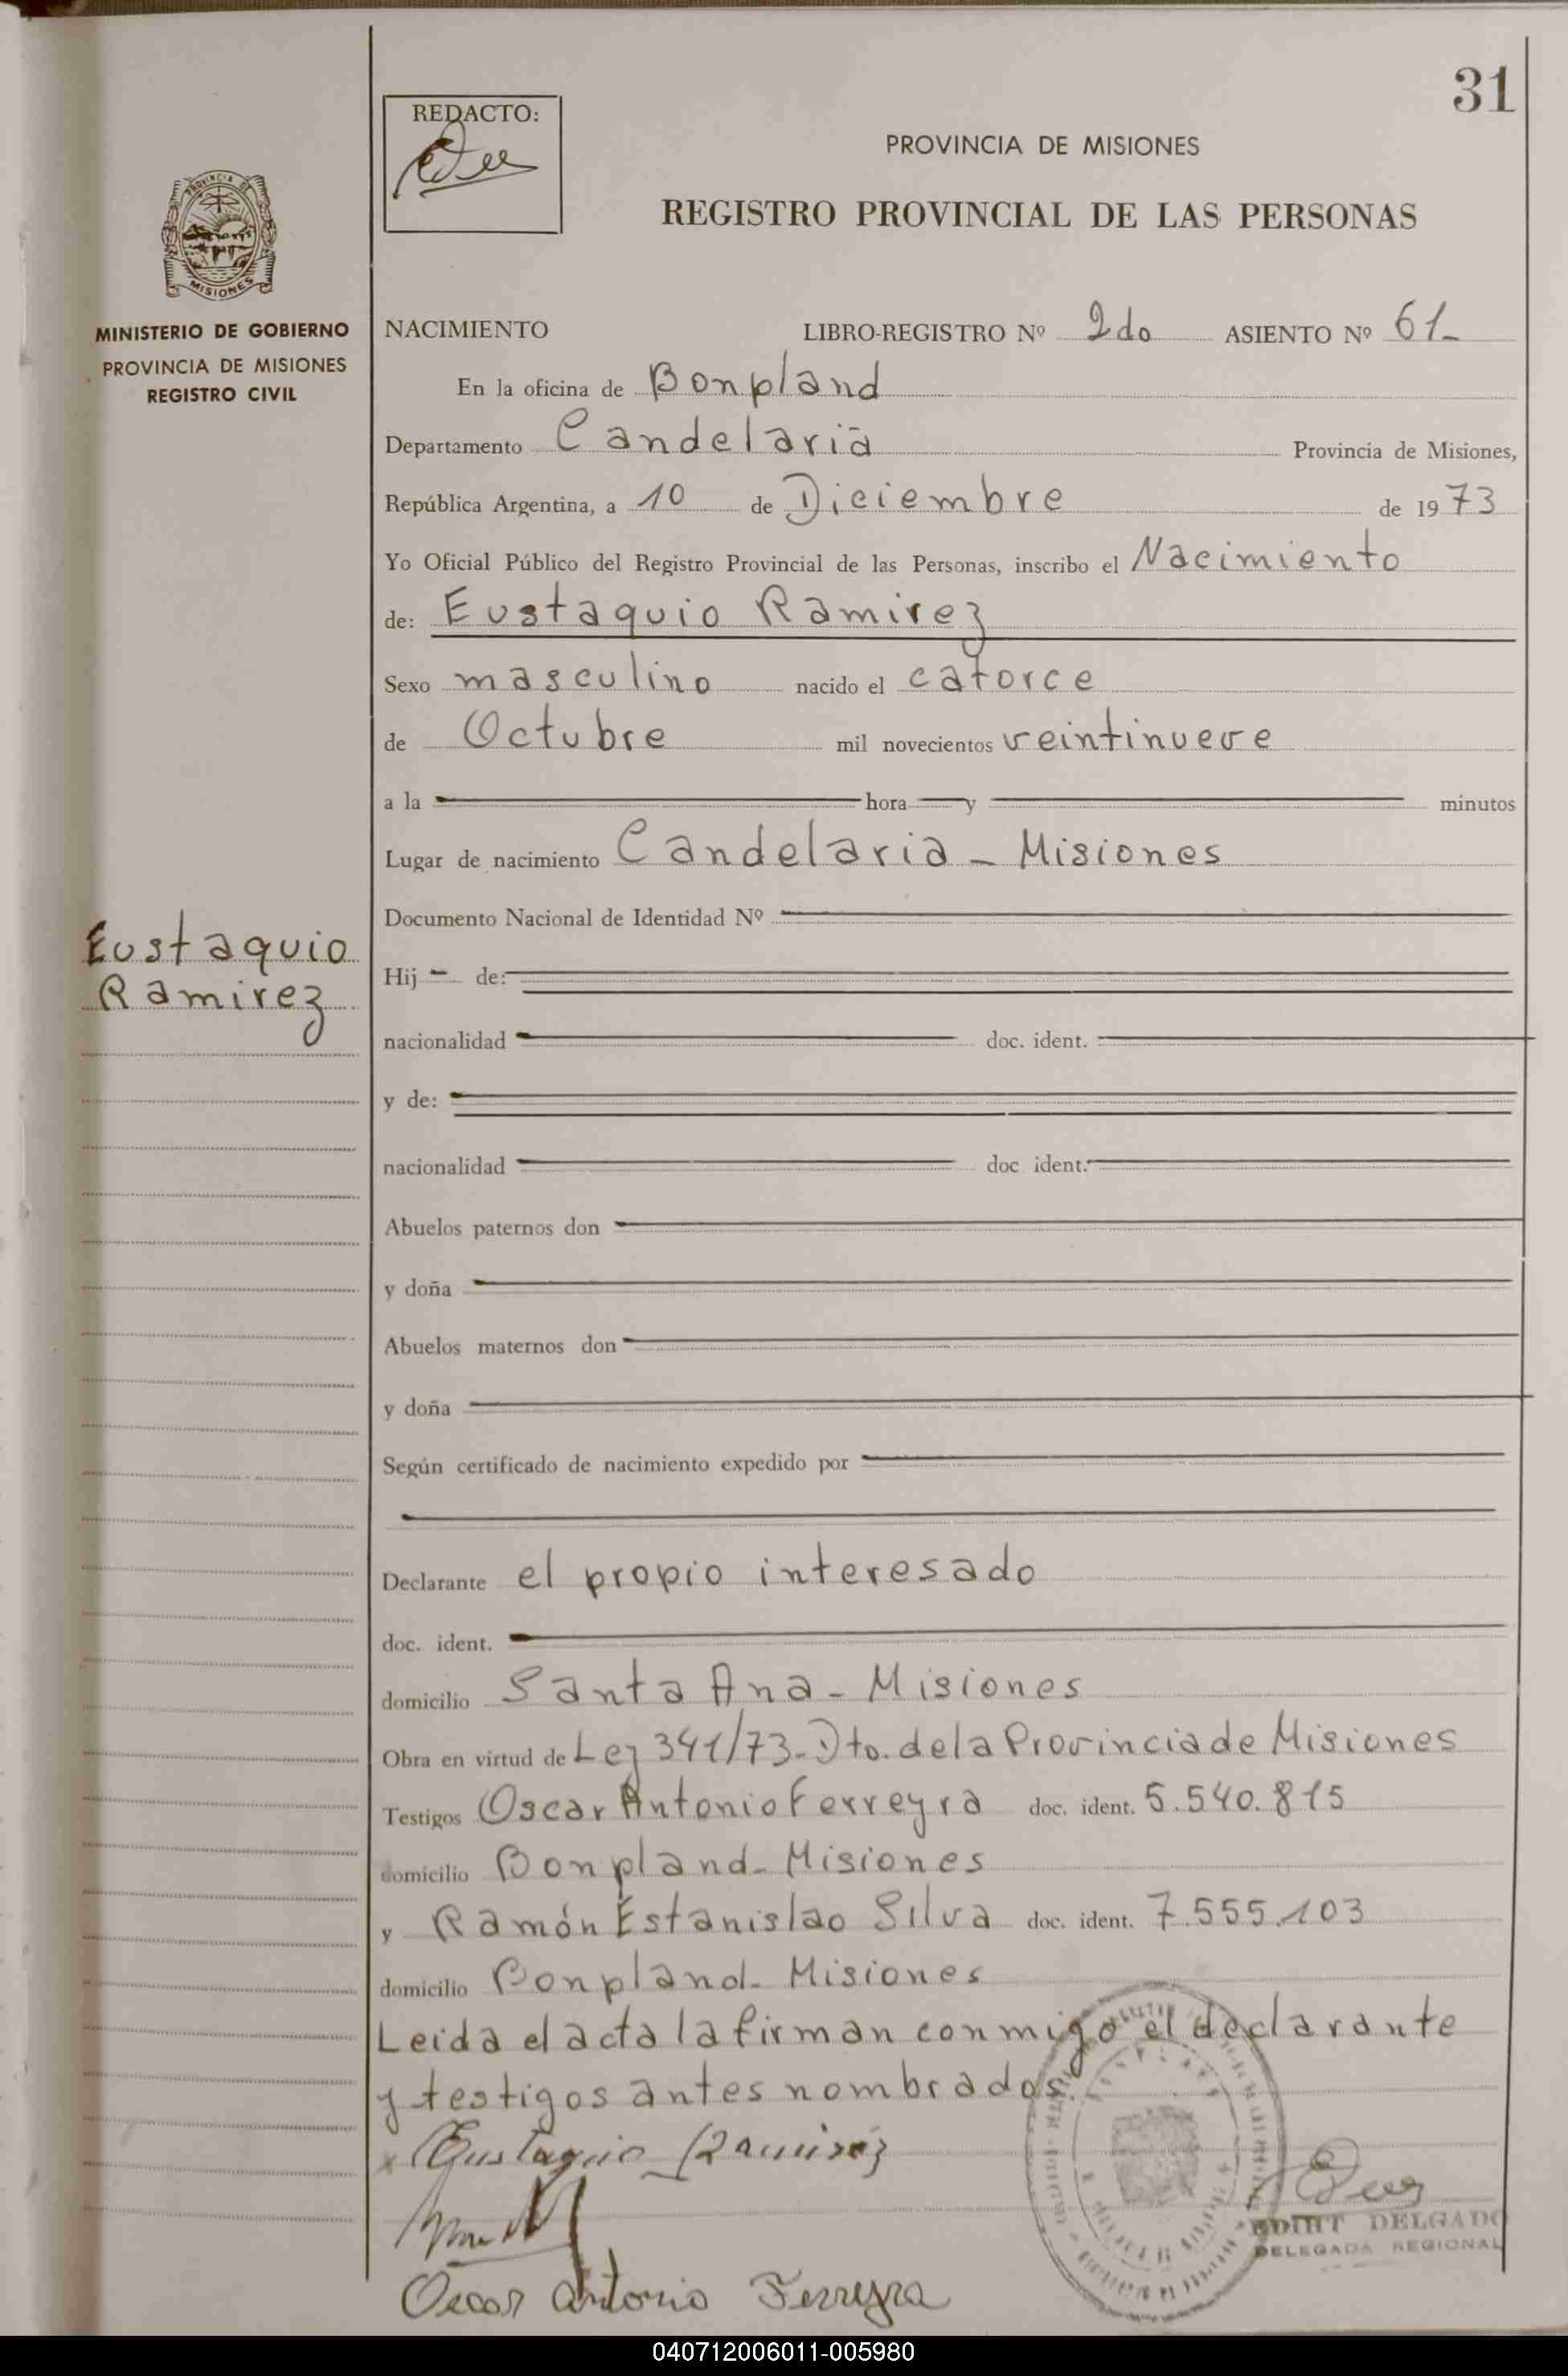 31
REDACTO:
PROVINCIA DE MISIONES
REGISTRO PROVINCIAL DE LAS PERSONAS
PROVINCIA DE
MISIONES
MINISTERIO DE GOBIERNO
PROVINCIA DE MISIONES
REGISTRO CIVIL
NACIMIENTO LIBRO-REGISTRO Nº 2do ASIENTO Nº 61
En la oficina de Bonpland
Departamento Candelaria Provincia de Misiones,
República Argentina, a 10 de Diciembre de 1973
Yo Oficial Público del Registro Provincial de las Personas, inscribo el Nacimiento
de: Eustaquio Ramirez
Sexo masculino nacido el catorce
de Octubre mil novecientos veintinueve
a la hora y minutos
Lugar de nacimiento Candelaria - Misiones
Documento Nacional de Identidad Nº
Eustaquio
Ramirez
Hij - de:
nacionalidad doc. ident.
y de:
nacionalidad doc ident.
Abuelos paternos don
y doña
Abuelos maternos don
y doña
Según certificado de nacimiento expedido por
Declarante el propio interesado
doc. ident.
domicilio Santa Ana - Misiones
Obra en virtud de Ley 341/73 - Dto. de la Provincia de Misiones
Testigos Oscar Antonio Ferreyra doc. ident. 5.540.815
domicilio Bonpland - Misiones
y Ramón Estanislao Silva doc. ident. 7.555.103
domicilio Bonpland - Misiones
Leida el acta la firman conmigo el declarante
y testigos antes nombrados.
x Eustaquio Ramirez
EDIHT DELGADO
DELEGADA REGIONAL
Oscar Antonio Ferreyra
040712006011-005980